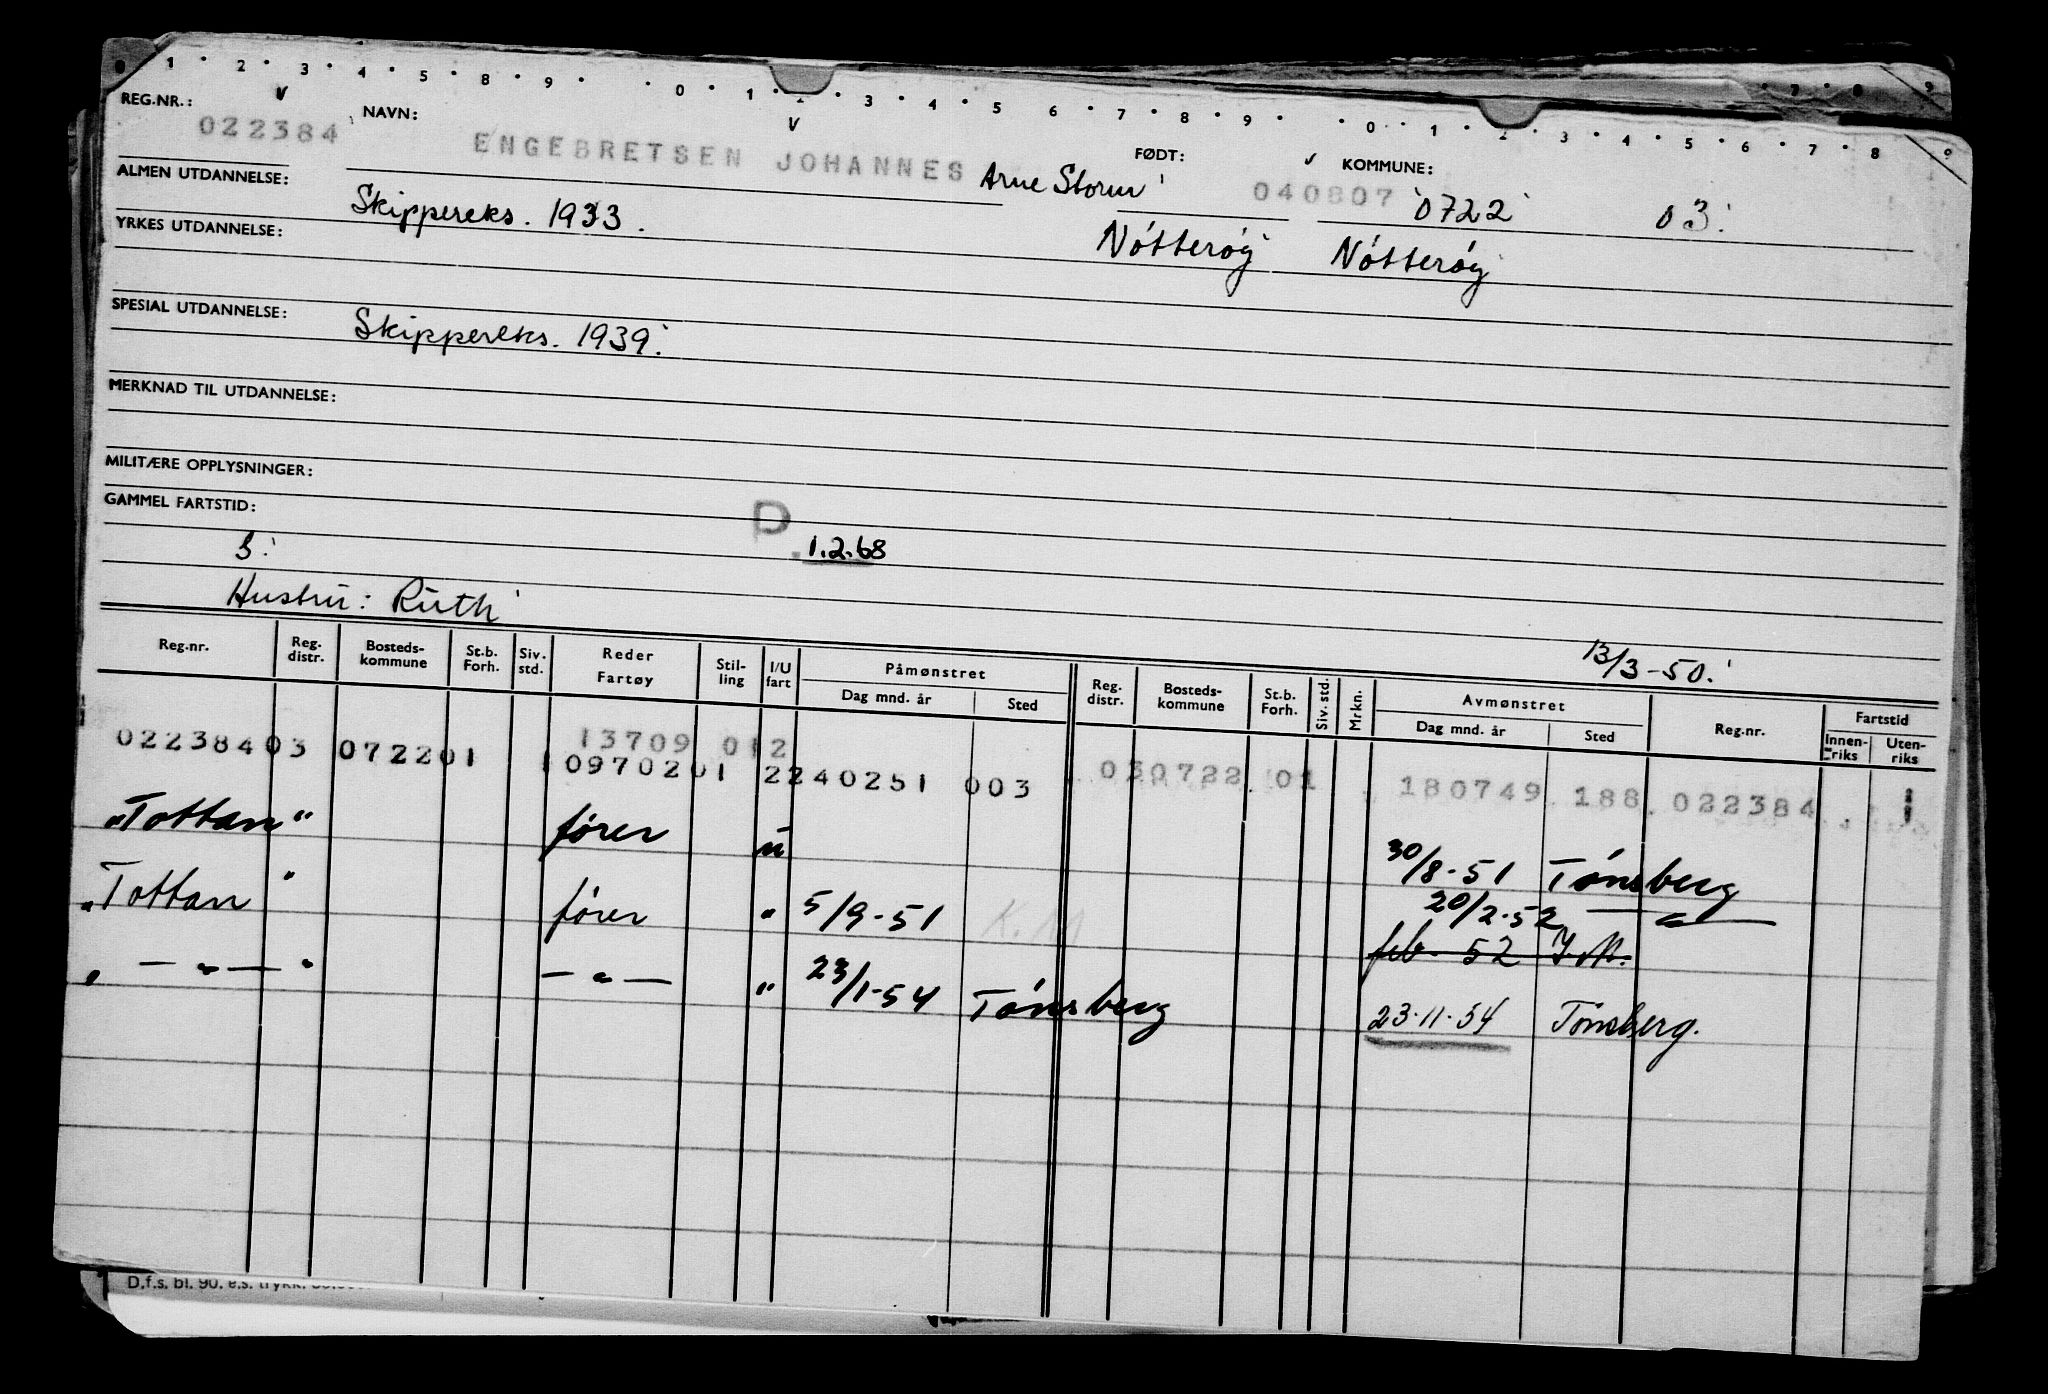 0 1 2 3 4 5 8 9 0 1 2 3 4 5 6 7 8 9 0 1 2 3 4 5 6 7 8 9
REG.NR.: NAVN: FØDT: KOMMUNE:
022384 ENGEBRETSEN JOHANNES Arne Storm 040807 0722 03
ALMEN UTDANNELSE: Skippereks. 1933. Nötteröy Nötteröy
YRKES UTDANNELSE:
SPESIAL UTDANNELSE: Skippereks. 1939.
MERKNAD TIL UTDANNELSE:
MILITÆRE OPPLYSNINGER:
GAMMEL FARTSTID:
3. P. 1.2.68
Hustru: Ruth
13/3-50.
Reg.nr. Reg. distr. Bosteds-kommune St.b. Forh. Siv. std. Reder Fartøy Stil-ling I/U fart Påmønstret Dag mnd. år Sted Reg. distr. Bosteds-kommune St.b. Forh. Siv. std. Mrkn. Avmønstret Dag mnd. år Sted Reg.nr. Fartstid Innen-riks Uten-riks
13709 012
02238403 072201 1 0970201 2240251 003 030722 01 180749 188 022384
"Tottan" fører u 30/8-51 Tönsberg
"Tottan" fører " 5/9-51 K.M 20/2-52 — " —
feb. 52
" — " — " — " — " 23/1-54 Tönsberg 23-11-54 Tönsberg.
D.f.s. bl. 90. e.s. trykk.